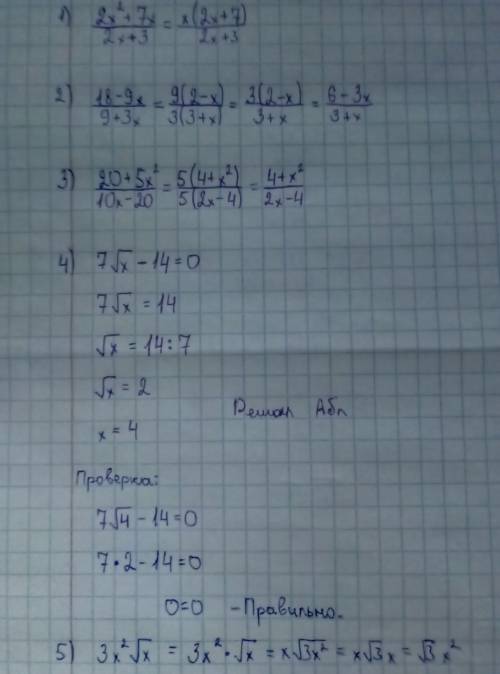 1) (2x²+7x)/(2x+3) = x(2x+7)/(2x+3)
2) (18-9x)/(9+3x) = 9(2-x)/3(3+x) = 3(2-x)/(3+x) = (6-3x)/(3+x)
3) (20+5x²)/(10x-20) = 5(4+x²)/5(2x-4) = (4+x²)/(2x-4)
4) 7√x - 14 = 0
7√x = 14
√x = 14:7
√x = 2
x = 4
Решал Абп
Проверка:
7√4 - 14 = 0
7•2 - 14 = 0
0=0 - Правильно.
5) 3x²√x = 3x²•√x = x√3x² = x√3x = √3 x²